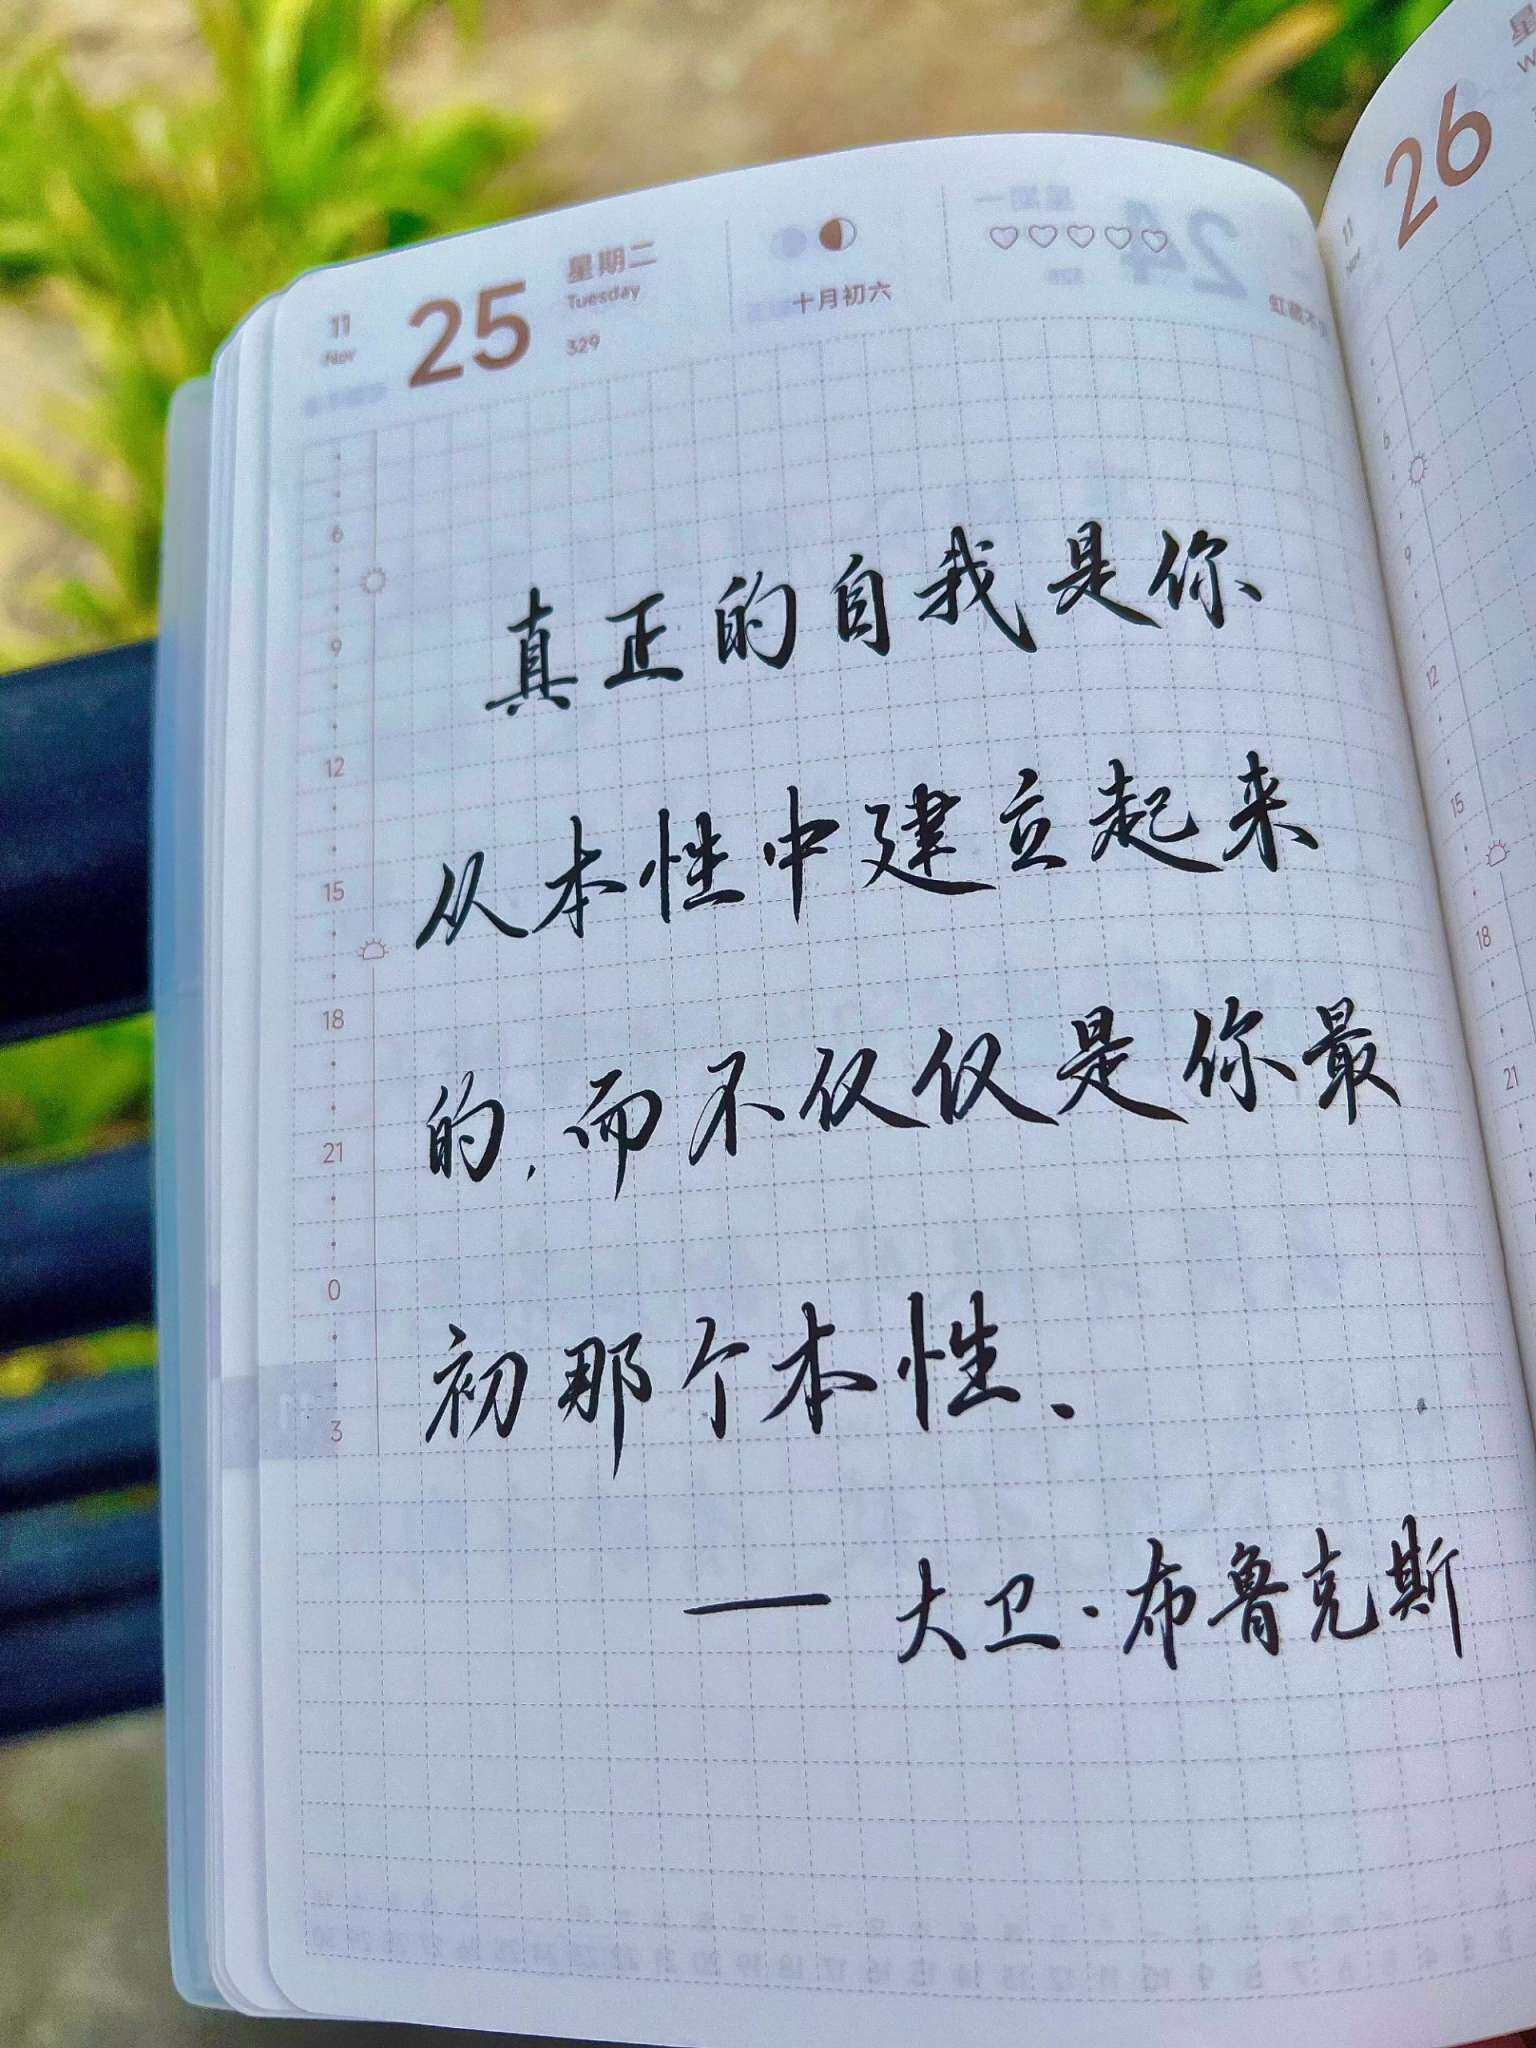 11
Nov
25
星期二
Tuesday
329
十月初六
真正的自我是你
从本性中建立起来
的,而不仅仅是你最
初那个本性、
— 大卫·布鲁克斯
6
9
12
15
18
21
0
3
11
26
6
9
12
15
18
21